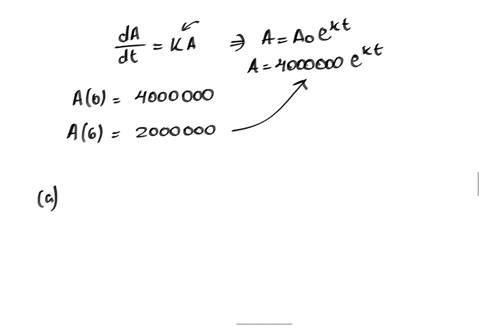 dA/dt = KA ⇒ A = A₀ e^kt
A = 4000000 e^kt
A(0) = 4000000
A(6) = 2000000
(a)